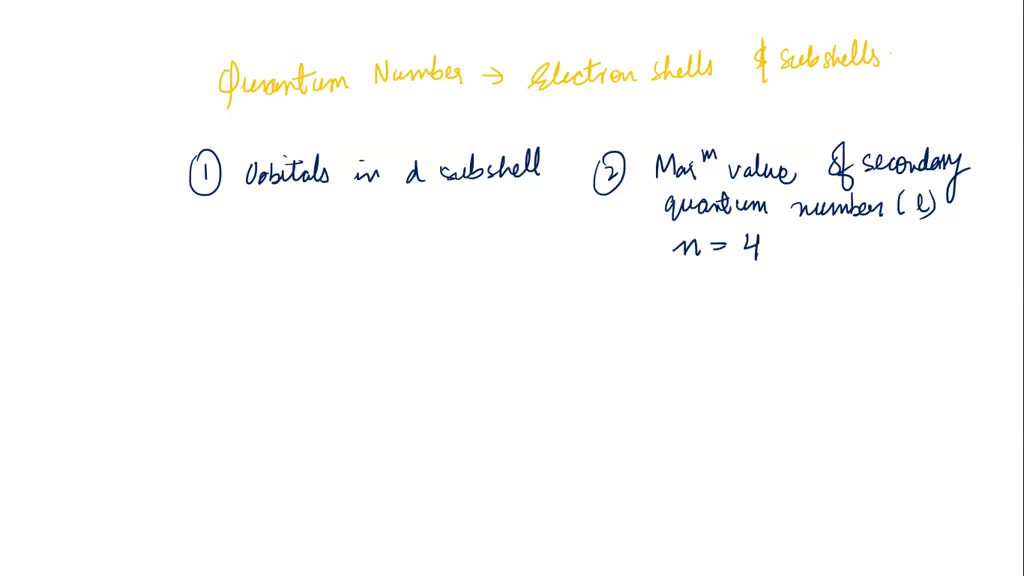 Quantum Number → Electron shells & subshells.
① Orbitals in d subshell
② Maxᵐ value of secondary
quantum number (l)
n = 4